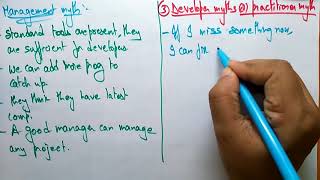 Management myth:-
- Standard tools are present, they
are sufficient for developer
- We can add more prog to
catch up.
- they think they have latest
comp.
- A good manager can manage
any project.
③ Developer myths (or) practitioner myth
- If I miss something now,
I can fix